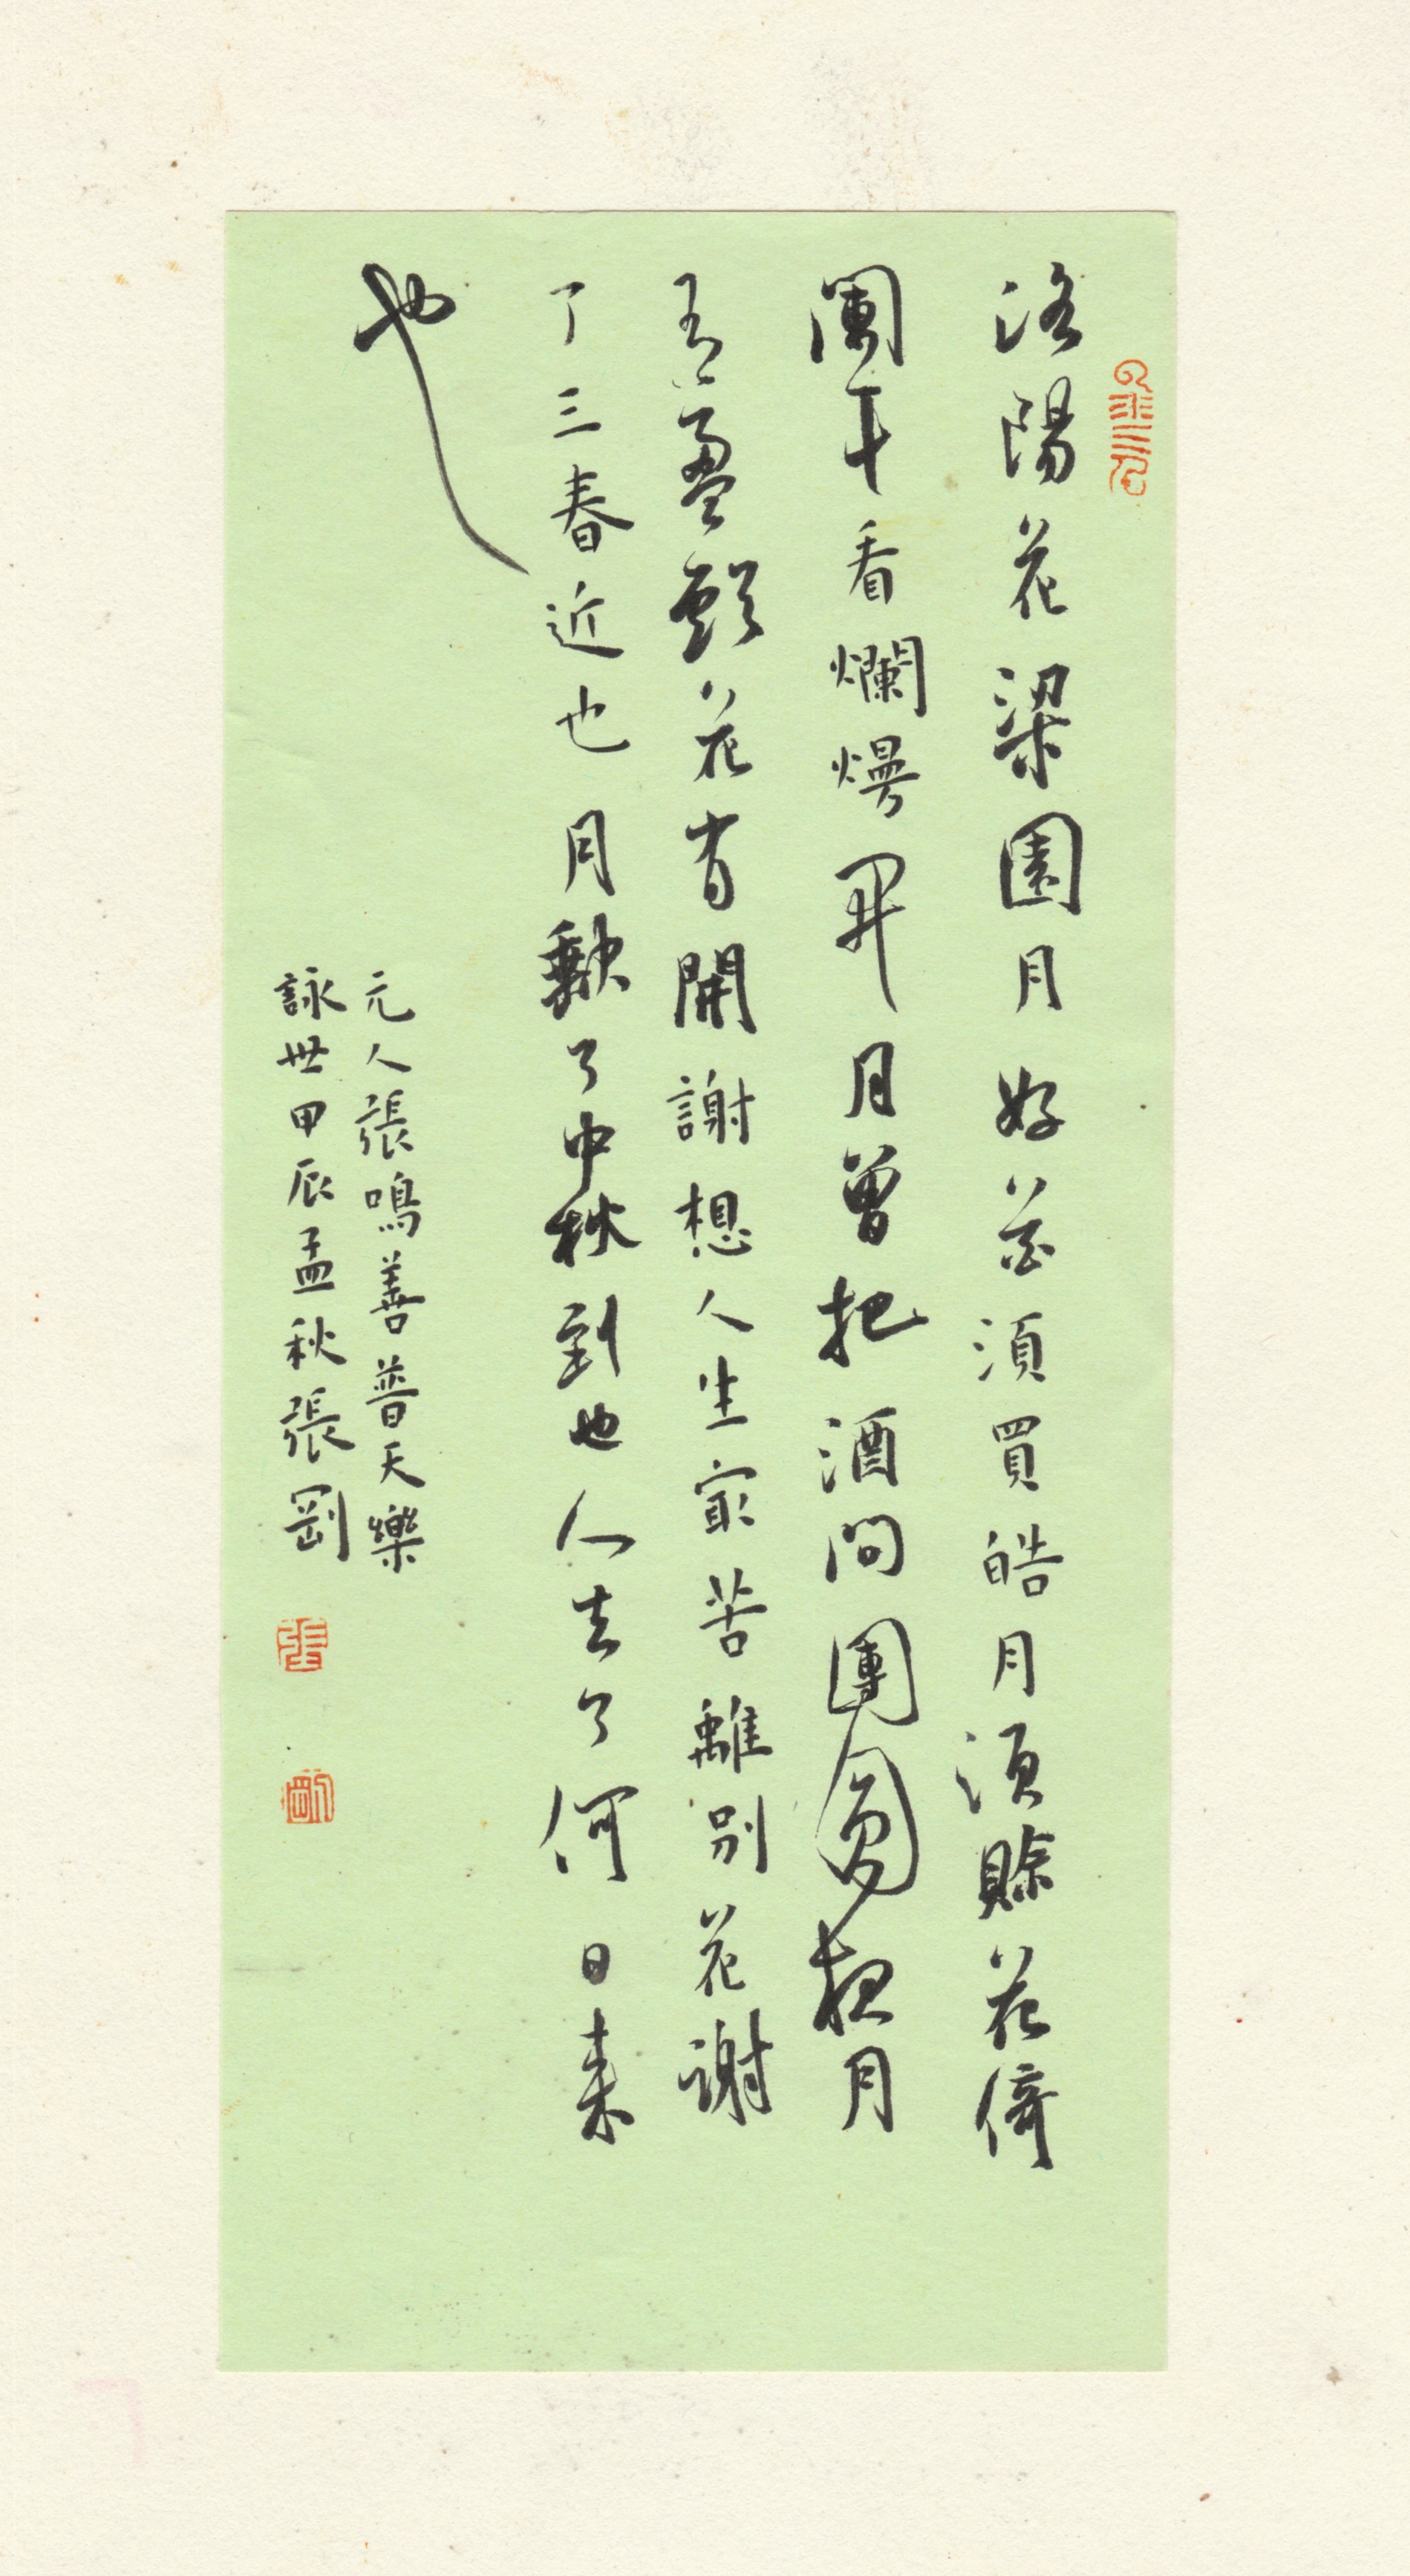 洛陽花梁園月好花須買皓月須賒花倚
闌干看爛熳開月曾把酒問團圓夜月
有盈虧花有開謝想人生最苦離別花謝
了三春近也月缺了中秋到也人去了何日来
也
元人張鳴善普天樂
詠世甲辰孟秋張剛
張
剛